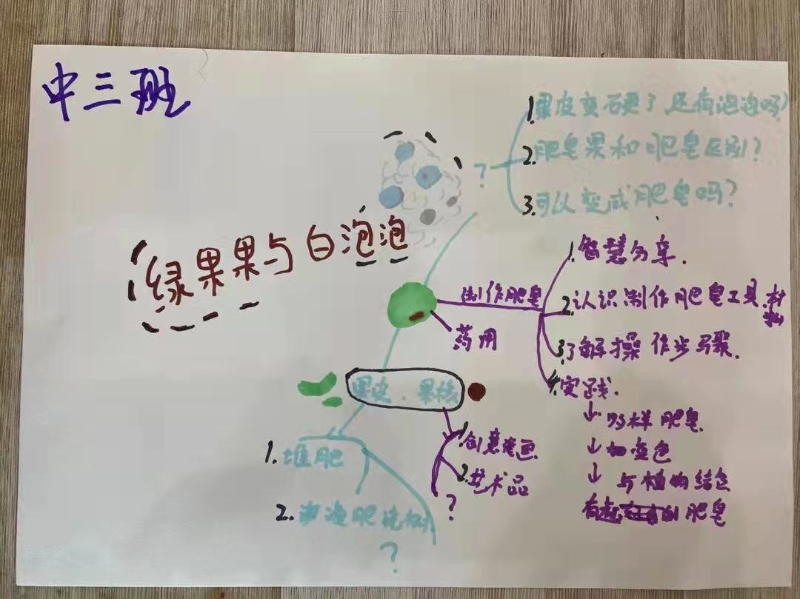 中三班
绿果果与白泡泡
?
1.果皮变石更了还有泡泡吗?
2.肥皂果和肥皂区别?
3.可以变成肥皂吗?
制作肥皂
药用
1.智慧分享.
2.认识制作肥皂工具.材料
3.了解操作步骤.
4.实践.
↓
↓ 加变色
↓ 与植物结合
肥皂
果皮、果核
1.创意
2.艺术品
?
1.堆肥
2.
?